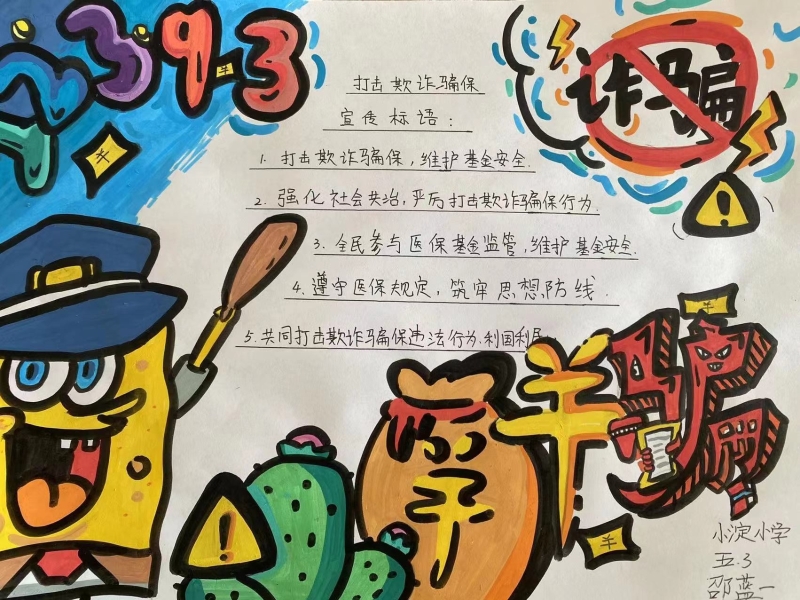 39.3
¥
¥
诈骗
!
打击欺诈骗保
宣传标语：
1. 打击欺诈骗保，维护基金安全.
2. 强化社会共治，严厉打击欺诈骗保行为.
3. 全民参与医保基金监管，维护基金安全.
4. 遵守医保规定，筑牢思想防线.
5. 共同打击欺诈骗保违法行为.利国利民.
¥
¥
骗
!
¥
小淀小学
五.3
邵蓝一